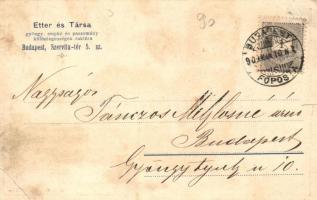 Etter és Társa
gyöngy, csipke és paszomány
különlegességek raktára
Budapest, Szervita-tér 5. sz.
90
BUDAPEST
FŐPOSTA
Nagyságos
Tánczos Miklósné
Budapest
Gyöngytyuk u 10.